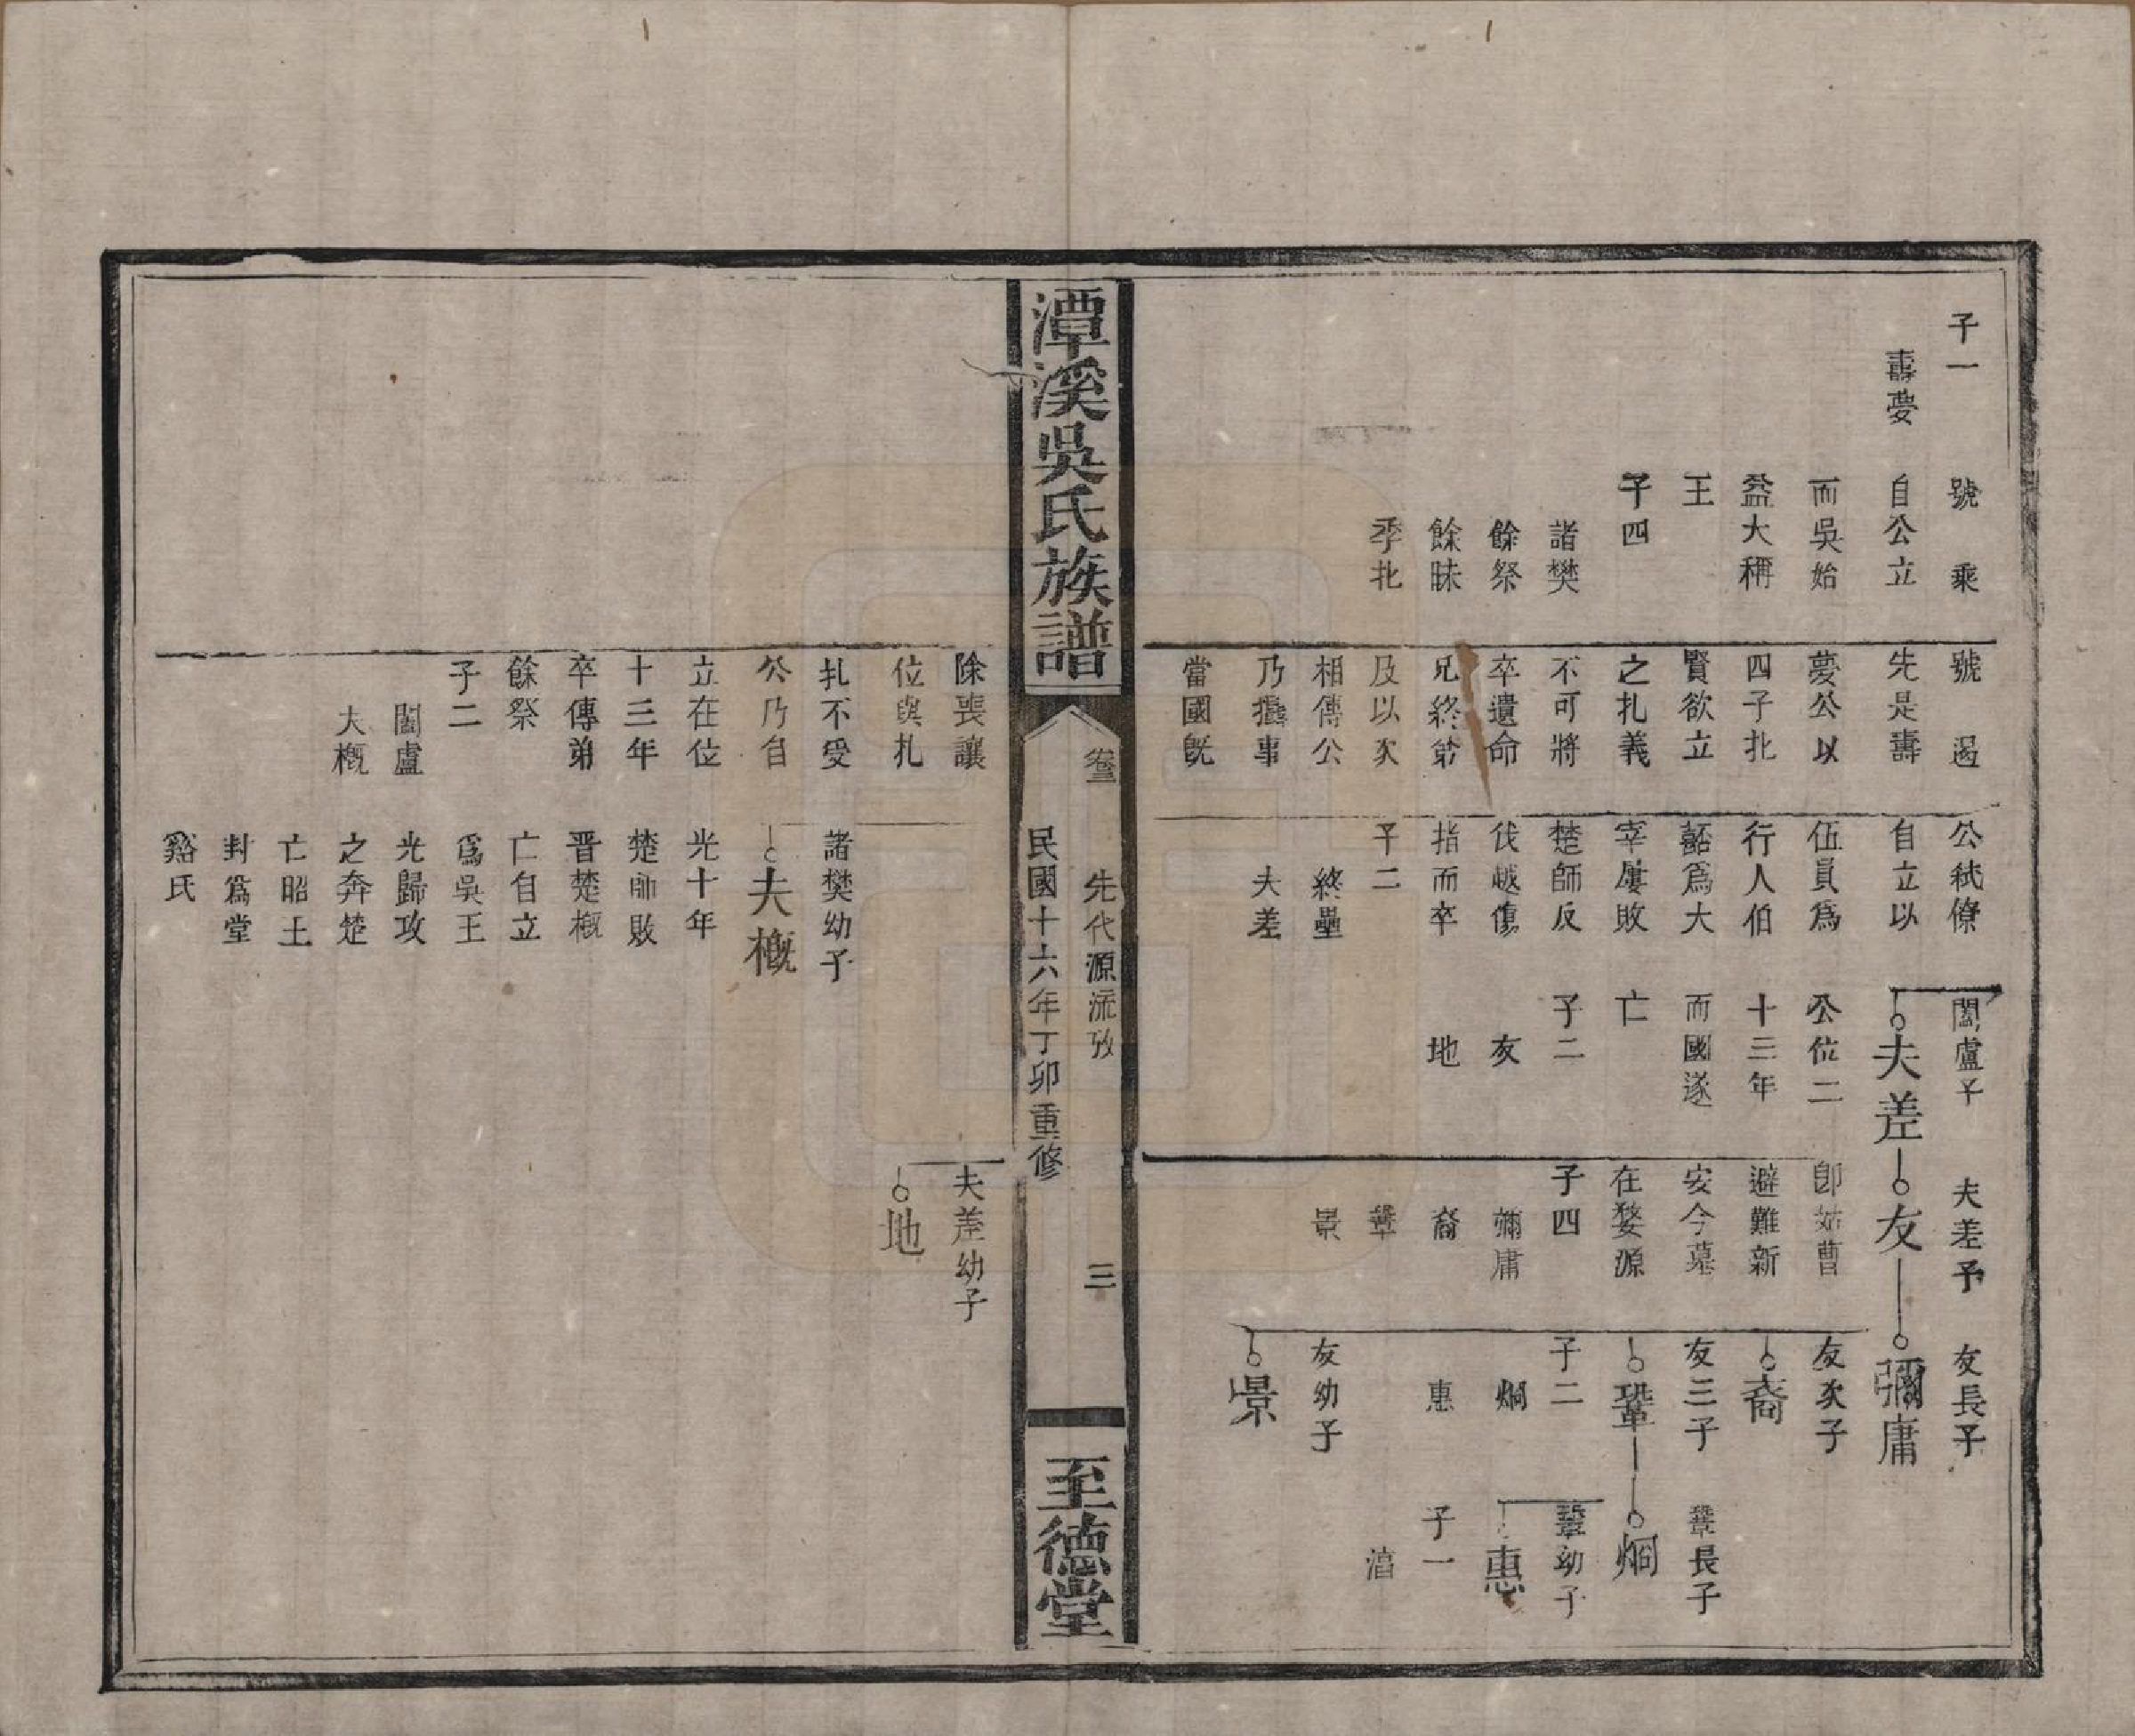 子一
壽夢
號乘
自公立
而吳始
益大稱
王
子四
諸樊
餘祭
餘昧
季札
號遏
先是壽
夢公以
四子札
賢欲立
之札義
不可將
卒遺命
兄終弟
及以次
相傳公
乃攝事
當國旣
公弒僚
自立以
伍員爲
行人伯
嚭爲大
宰屢敗
楚師反
伐越傷
指而卒
子二
終壘
夫差
闔盧子
夫差
公位二
十三年
而國遂
亡
子二
友
地
夫差子
友
卽姑曹
避難新
安今墓
在婺源
子四
彌庸
裔
鞏
景
友長子
彌庸
友次子
裔
友三子
鞏
子二
烱
惠
友幼子
景
鞏長子
烱
鞏幼子
惠
子一
潪
潭溪吳氏族譜
卷三
先代源流攷
三
民國十六年丁卯重修
至德堂
除喪讓
位與札
札不受
公乃自
立在位
十三年
卒傳弟
餘祭
子二
闔盧
夫概
諸樊幼子
夫概
光十年
楚師敗
晋楚概
亡自立
爲吳王
光歸攻
之奔楚
亡昭王
封爲堂
谿氏
夫差幼子
地